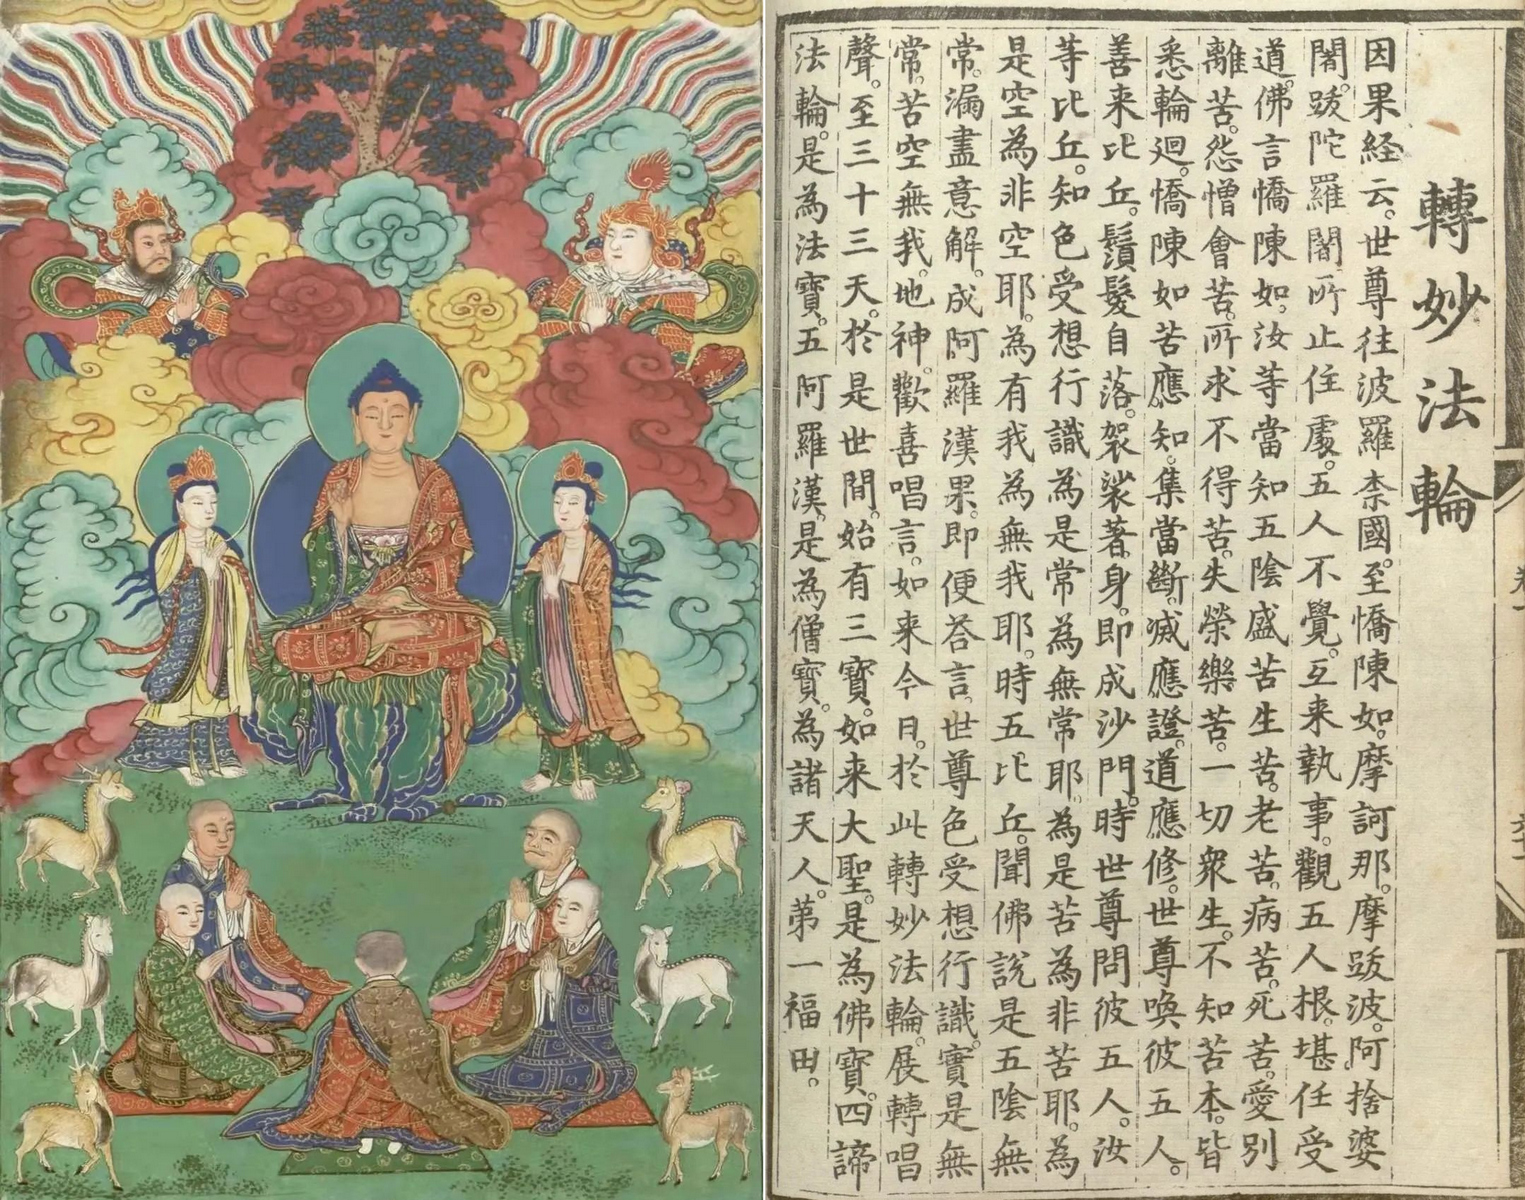 轉妙法輪
因果経云。世尊往波羅柰國。至憍陳如。摩訶那。摩跋波。阿捨婆
闍。跋陀羅闍所止住處。五人不覺。互来執事。觀五人根。堪任受
道。佛言憍陳如。汝等當知五陰盛苦生苦。老苦。病苦。死苦。愛別
離苦。怨憎會苦。所求不得苦。失榮樂苦。一切衆生。不知苦本。皆
悉輪迴。憍陳如苦應知。集當斷。滅應證。道應修。世尊喚彼五人。
善来比丘。鬚髮自落。袈裟著身。即成沙門。時世尊問彼五人。汝
等比丘。知色受想行識為是常為無常耶。為是苦為非苦耶。為
是空為非空耶。為有我為無我耶。時五比丘。聞佛說是五陰無
常。漏盡意解。成阿羅漢果。即便荅言。世尊色受想行識。實是無
常。苦空無我。地神。歡喜唱言。如来今日。於此轉妙法輪。展轉唱
聲。至三十三天。於是世間。始有三寶。如来大聖。是為佛寶。四諦
法輪。是為法寶。五阿羅漢。是為僧寶。為諸天人。第一福田。